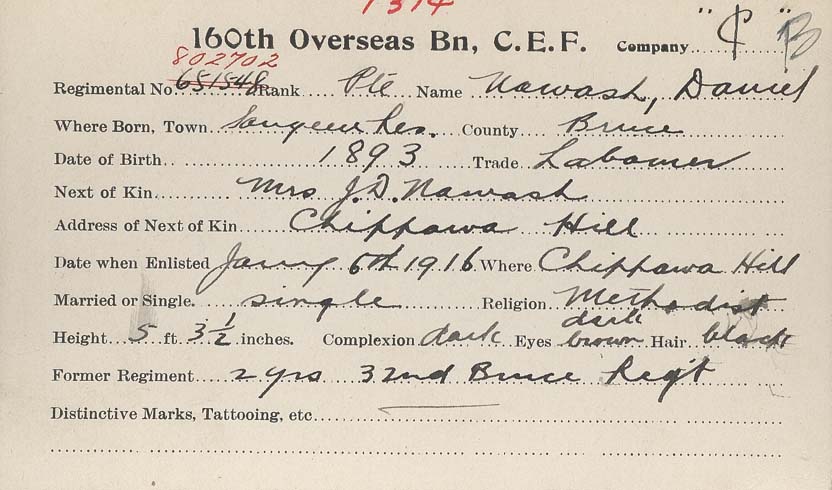 1314
160th Overseas Bn, C.E.F. Company "C" B
802702
Regimental No. 651548 Rank Pte Name Nawash, Daniel
Where Born, Town Saugeen Res. County Bruce
Date of Birth 1893 Trade Labourer
Next of Kin Mrs J.D. Nawash
Address of Next of Kin Chippawa Hill
Date when Enlisted Jany 6th 1916 Where Chippawa Hill
Married or Single. single Religion Methodist
dark
Height 5 ft. 3 1/2 inches. Complexion dark Eyes brown Hair black
Former Regiment 2 yrs 32nd Bruce Reg't
Distinctive Marks, Tattooing, etc.